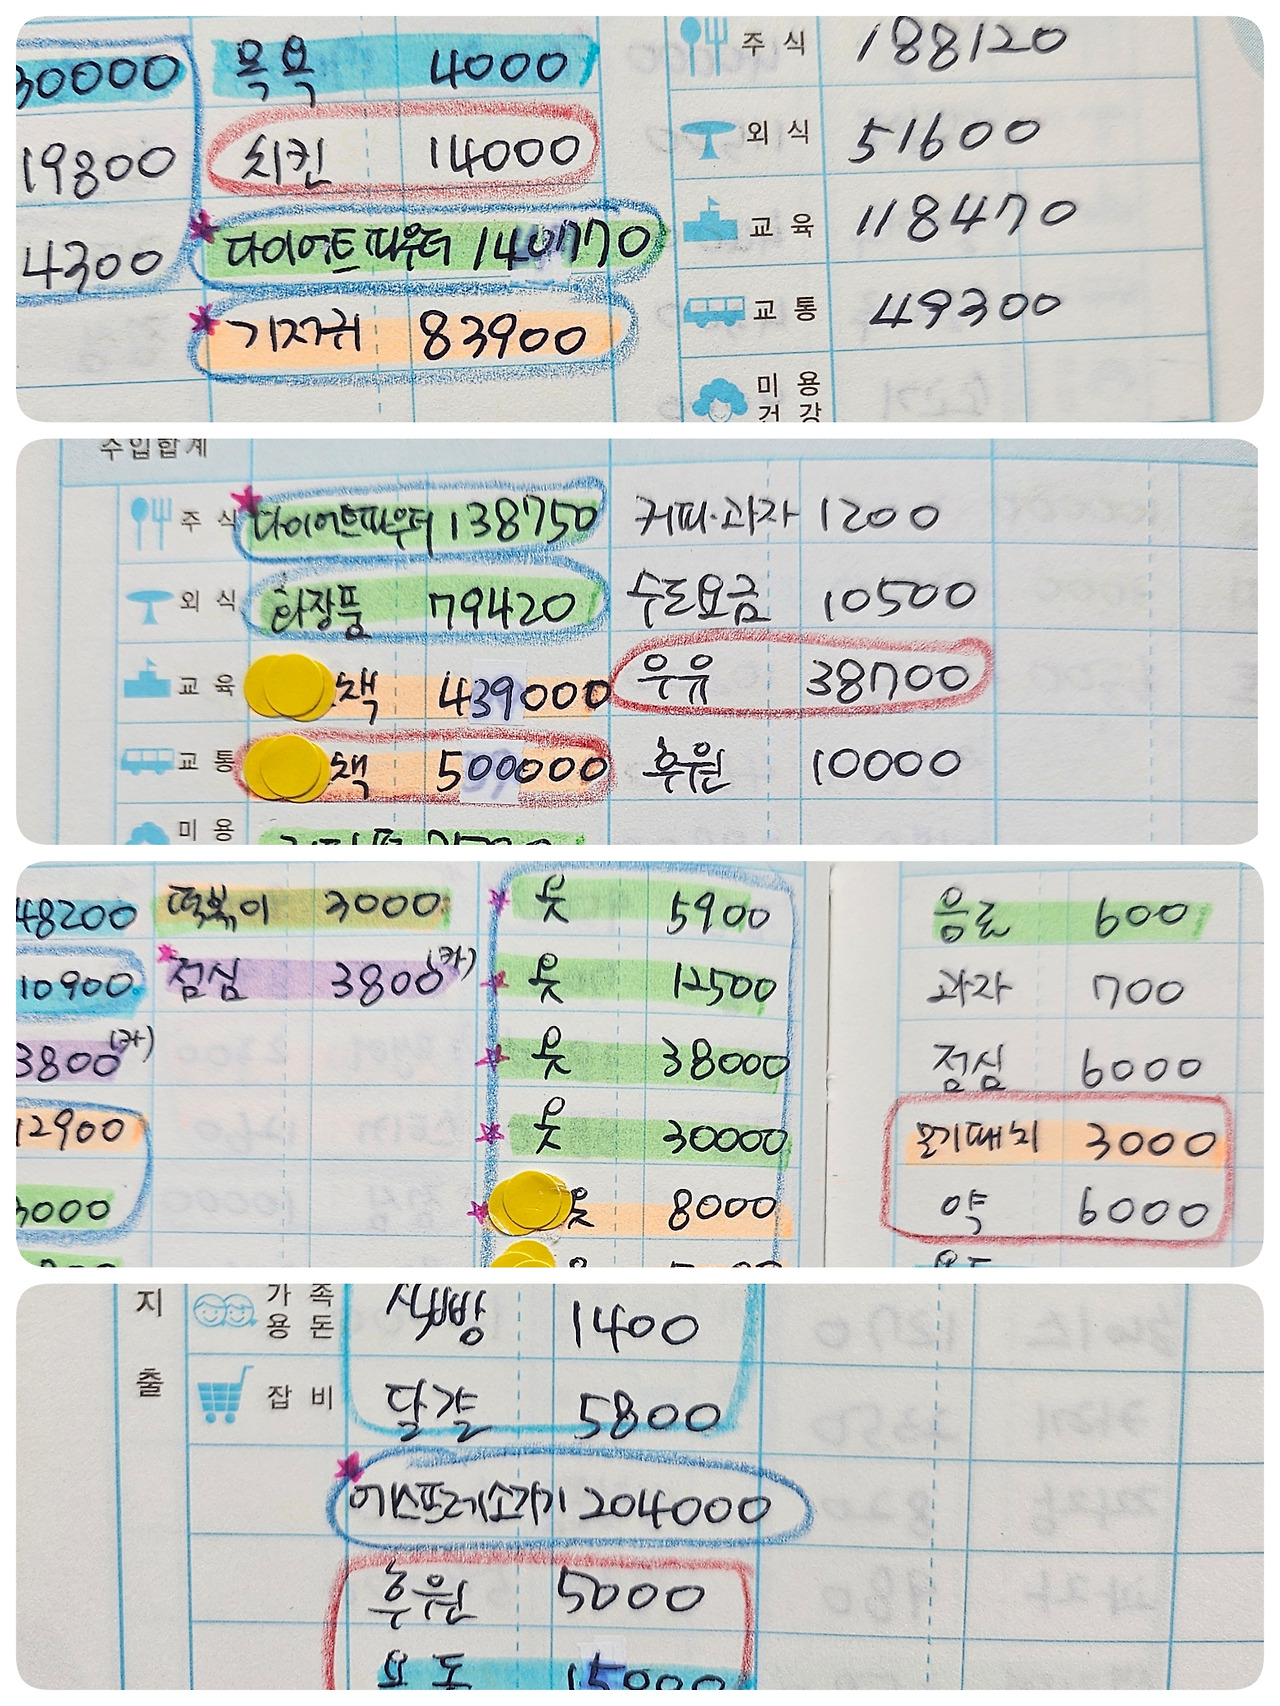 30000 목욕 4000 주식 188120
19800 치킨 14000 외식 51600
4300 다이어트파우더 140770 교육 118470
기저귀 83900 교통 49300
미용
건강
수입합계
주식 다이어트파우더 138750 커피·과자 1200
외식 화장품 79420 수도요금 10500
교육 책 439000 우유 38700
교통 책 500000 후원 10000
미용
48200 떡볶이 3000 옷 5900 음료 600
10900 점심 3800(카) 옷 12500 과자 700
3800(카) 옷 38000 점심 6000
12900 옷 30000 모기패치 3000
3000 옷 8000 약 6000
지출
가족
용돈 1400
잡비 달걀 5800
에스프레소기기 204000
후원 5000
15000